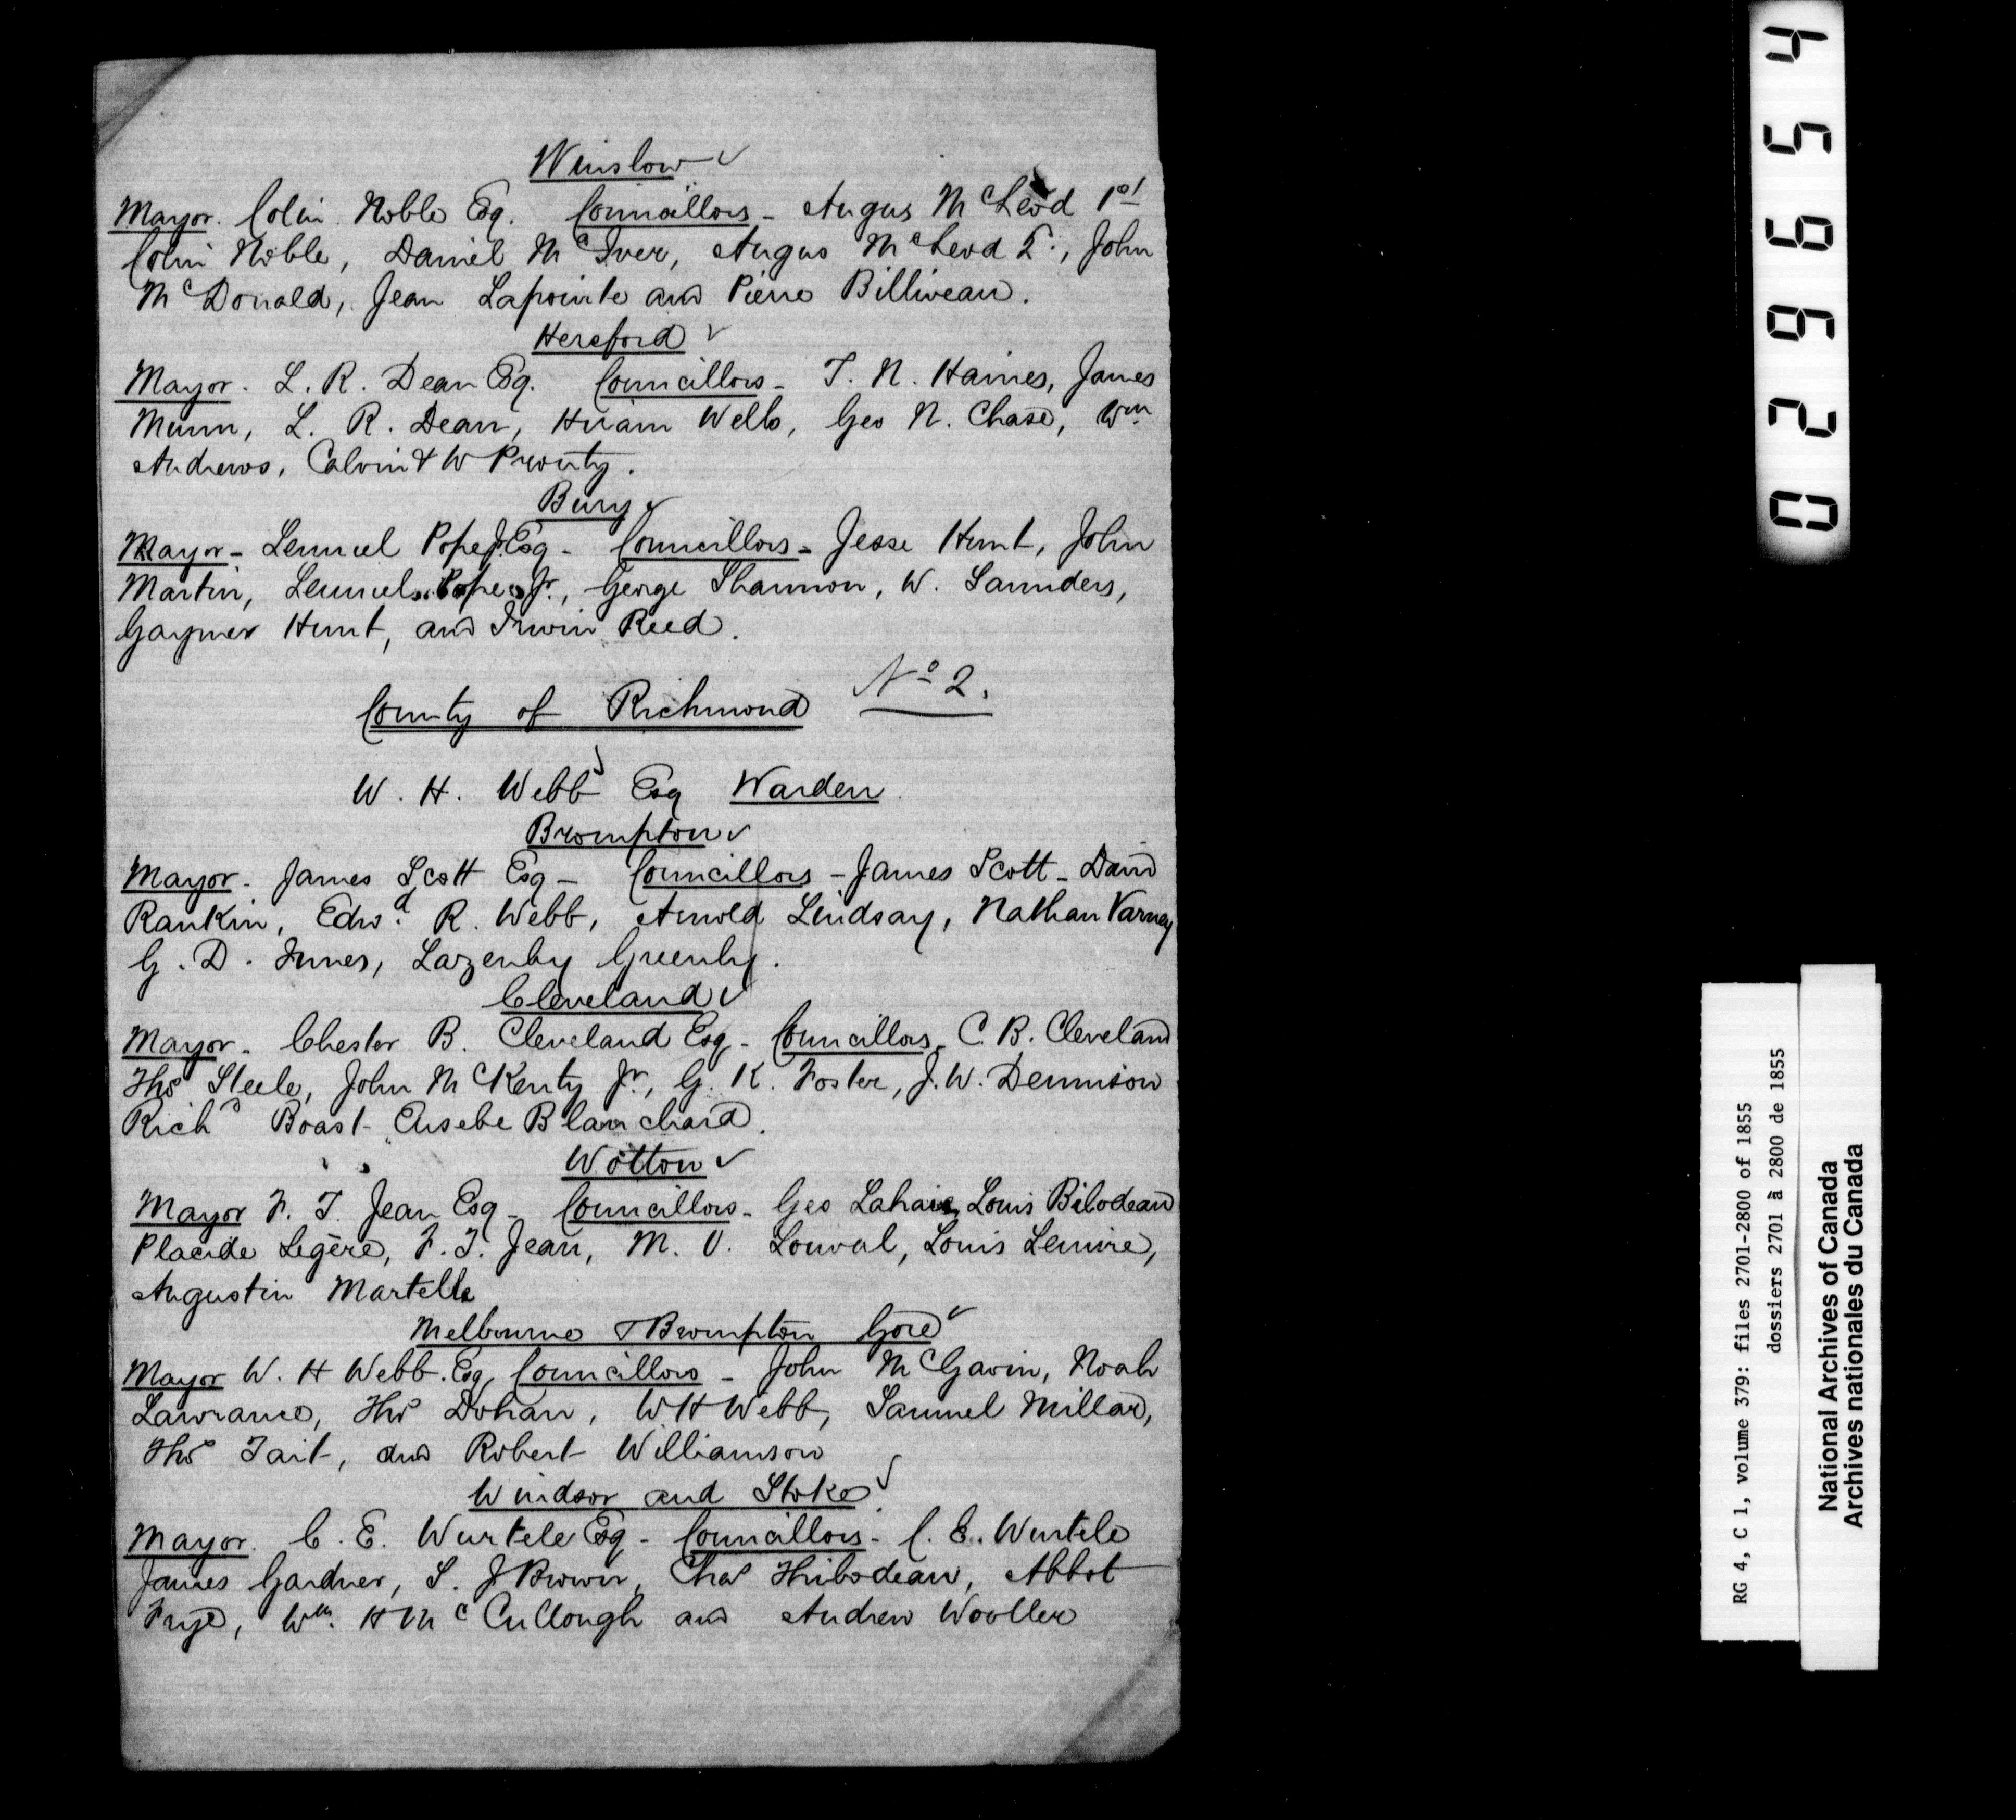 Winslow ✓
Mayor. Colin Noble Esq. Councillors - Angus McLeod 1st
Colin Noble, Daniel McIver, Angus McLeod 2., John
McDonald, Jean Lapointe and Pierre Billiveau.
Hereford ✓
Mayor. L. R. Dean Esq. Councillors - T. N. Haines, James
Munn, L. R. Dean, Hiram Wells, Geo N. Chase, Wm
Andrews, Calvin W Prouty.
Bury ✓
Mayor - Lemuel Pope Jr Esq - Councillors - Jesse Hunt, John
Martin, Lemuel Pope Jr., George Shannon, W. Saunders,
Gaymer Hunt, and Irwin Reed.
County of Richmond No 2.
W. H. Webb Esq Warden
Brompton ✓
Mayor - James Scott Esq - Councillors - James Scott - David
Rankin, Edwd. R. Webb, Arnold Lindsay, Nathan Varney
G. D. Innes, Lazenby Greenly.
Cleveland ✓
Mayor - Chester B. Cleveland Esq - Councillors - C. B. Cleveland
Thos Steele, John McKenty Jr., G. K. Foster, J. W. Dennison
Richd Boast - Eusebe Blanchard.
Wotton ✓
Mayor F. T. Jean Esq - Councillors - Geo Lahaie, Louis Bilodeau
Placide Legère, F. T. Jean, M. U. Louval, Louis Lemire,
Augustin Martelle
Melbourne & Brompton Gore ✓
Mayor W. H Webb. Esq. Councillors - John McGavin, Noah
Lawrance, Thos Dohan, W H Webb, Samuel Millar,
Thos Tait, and Robert Williamson
Windsor and Stoke ✓
Mayor. C. E. Wurtele Esq - Councillors - C. E. Wurtele
James Gardner, S. J Brown, Chas Thibodeau, Abbot
Frye, Wm. H McCullough and Andrew Wooller
029654
RG 4, C 1, volume 379: files 2701-2800 of 1855
dossiers 2701 à 2800 de 1855
National Archives of Canada
Archives nationales du Canada